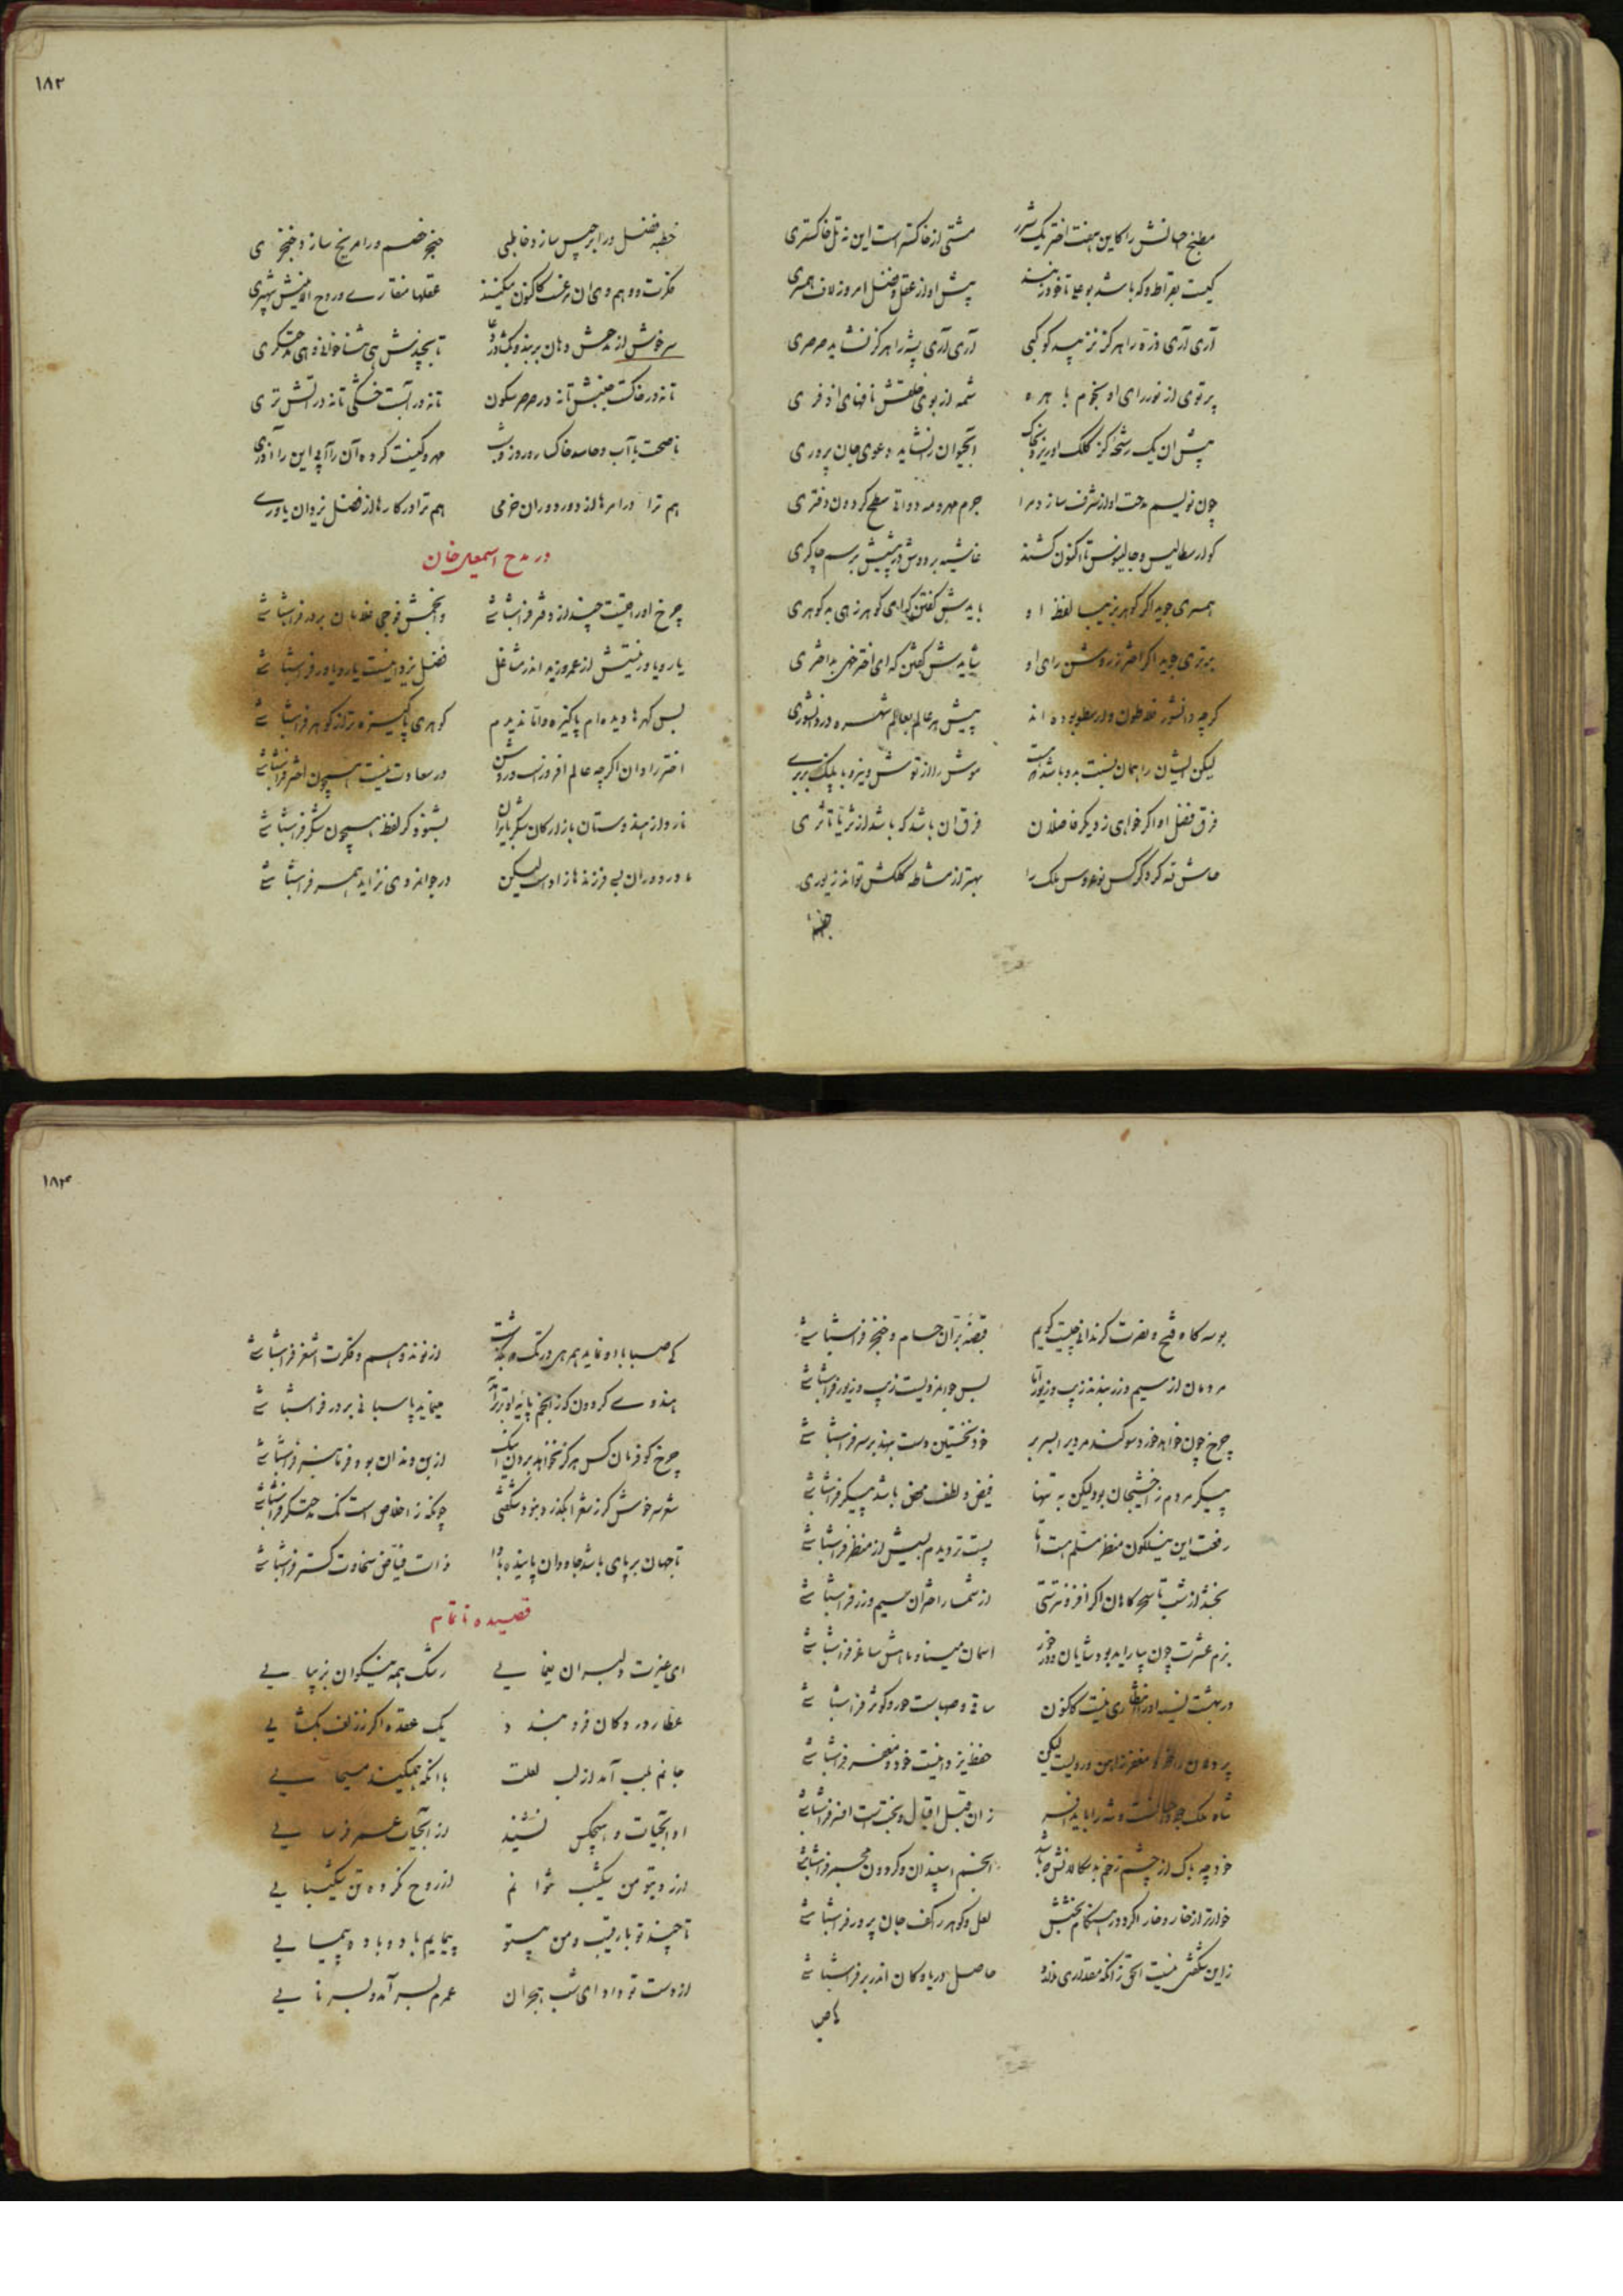 ۱۸۳
مطبخ احسانش را کاین هفت اختر یک شرر مشتی از خاکستر است این نه تل خاکستری
کیست بقراط و که باشد بوعلی تا خود زنند پیش او از عقل و فضل امروز لاف همسری
آری آری ذره را هرگز نزیبد کوکبی آری آری پشه را هرگز نشاید صرصری
پرتوی از نور رای او نجوم باهره شمه از بوی خلقش نافهای اذفری
پیش آن یک رشحه کز کلک او ریزد بخاک آبحیوان را نشاید دعوی جان پروری
چون نویسم مدحت او از شرف سازد مرا جرم مهر و مه دواتی سطح کردون دفتری
کو ارسطالیس و جالینوس تا اکنون کشند غاشیه بر دوش در پیشش برسم چاکری
همسری جوید اکر کوهر بزیب لفظ او بایدش کفتن که ای کوهر زهی بد کوهری
برتری جوید اکر اختر ز روشن رای او شایدش کفتن که ای اختر خهی بد اختری
کرچه دانشور فلاطون و ارسطو بوده اند پیش هر عالم بعالم شهره در دانشوری
لیکن ایشان را همان نسبت بدو باشد که هست موش را از توش و نیرو با پلنک بربری
فرق فضل او اکر خواهی ز دیکر فاضلان فرق آن باشد که باشد از ثریا تا ثری
بهتر از مشاطه کلکش تواند زیوری
خطبه
خطبه فضل ورا برجیس سازد خاطبی حنجر خصم ورا مریخ سازد خنجری
فکرت و وهم وی آن مرغست کاکنون میکنند عقلها منقاری و روح الامینش شهپری
سرخوش از مدحش دهان بربند و بکشا در دعا تا بچندش هی ثناخوانی و هی مدحتکری
تا نه در خاکست جنبش تا نه در صرصر سکون تا نه در آبست خشکی تا نه در آتش تری
ناصحت با آب و حاسد خاکسار و روز و شب مهر و کینت کرده آن را آبی این را آذری
هم ترا در امرها از دور دوران خرمی هم ترا در کارها از فضل یزدان یاوری
در مدح اسمعیل خان
چرخ اوراقیست چند از دفتر فراشباشی و انجمش فوجی غلامان بر در فراشباشی
یار و یاور نیستش از عمرو و زید اندر مشاغل فضل یزدانیست یار و یاور فراشباشی
بس کهرها دیده ام پاکیزه و اما ندیدم کوهری پاکیزه تر از کوهر فراشباشی
اختر رادان اکرچه عالم افروزست و روشن در سعادت نیست همچون اختر فراشباشی
نارد از هندوستان بازارکان شکر بایران بشنود کر لفظ همچون شکر فراشباشی
مادر دوران بسی فرزندها زادست لیکن در جوانمردی نزاید همسر فراشباشی
۱۸۴
بوسه کاه فتح و نصرت کر ندانی چیست کویم قبضه بران حسام و خنجر فراشباشی
مردمان از سیم و زر بندند زیب و زیور اما بس جوانمردیست زیب و زیور فراشباشی
چرخ چون خواهد خورد سوکند مردیرا بسر بر خود نخستین دست بنهد بر سر فراشباشی
پیکر مردم ز آخشیجان بود لیکن به تنها فیض و لطف محض باشد پیکر فراشباشی
رفعت این نیلکون منظر مسلم هست اما پست تر دیدم بسیش از منظر فراشباشی
بخشد از شب تا سحرکاهان اکر افزونترستی از شمار اختران سیم و زر فراشباشی
بزم عشرت چون بیاراید بود شایان و در خور آسمان مینا و ماهش ساغر فراشباشی
در بهشت نسیه اورا انتظاری نیست کاکنون ساقی و صهباست حور و کوثر فراشباشی
حفظ یزدانیست خود و مغفر فراشباشی
زان قبل اقبال و بختست افسر فراشباشی
خود چه باک از چشم زخم بدسکالانش که باشد انجم اسپندان و کردون مجمر فراشباشی
خوارتر از خار و خار اکردد هنکام بخشش لعل و کوهر در کف جان پرور فراشباشی
زاین شکفتی نیست الحق زانکه مقداری ندارد حاصل دریا و کان اندر بر فراشباشی
کی صبا
کی صبا با او نماید همرهی در تک که بکذشت از نوند وهم و فکرت اشقر فراشباشی
هندوی کردون کز انجم پایه او برتر آمد مینماید پاسبانی بر در فراشباشی
چرخ کو فرمان کس هرکز نخواهد برد اینک از بن دندان بود فرمانبر فراشباشی
شعر سرخوش کر ز شعرا بکذرد نبود شکفتی چونکه ز اخلاص است یک مدحتکر فراشباشی
تا جهان بر پای باشد جاودان پاینده بادا ذات فیاض سخاوت کستر فراشباشی
قصیده ناتمام
ای غیرت دلبران یغمایی رشک همه نیکوان بزیبایی
عطار در دکان فرو بندد یک عقده اکر ز زلف بکشایی
جانم بلب آمد از لب لعلت با انکه همیکند مسیحایی
او آبحیات و هیچکس نشنید از آبحیات عمر فرسایی
از دیتو من یکشب نتوانم از روح نکرده تن شکیبایی
تا چند تو با رقیب و من بیتو پیمایم باد و باده پیمایی
از دست تو داد ای شب هجران عمرم بسر آمد و بسر نایی